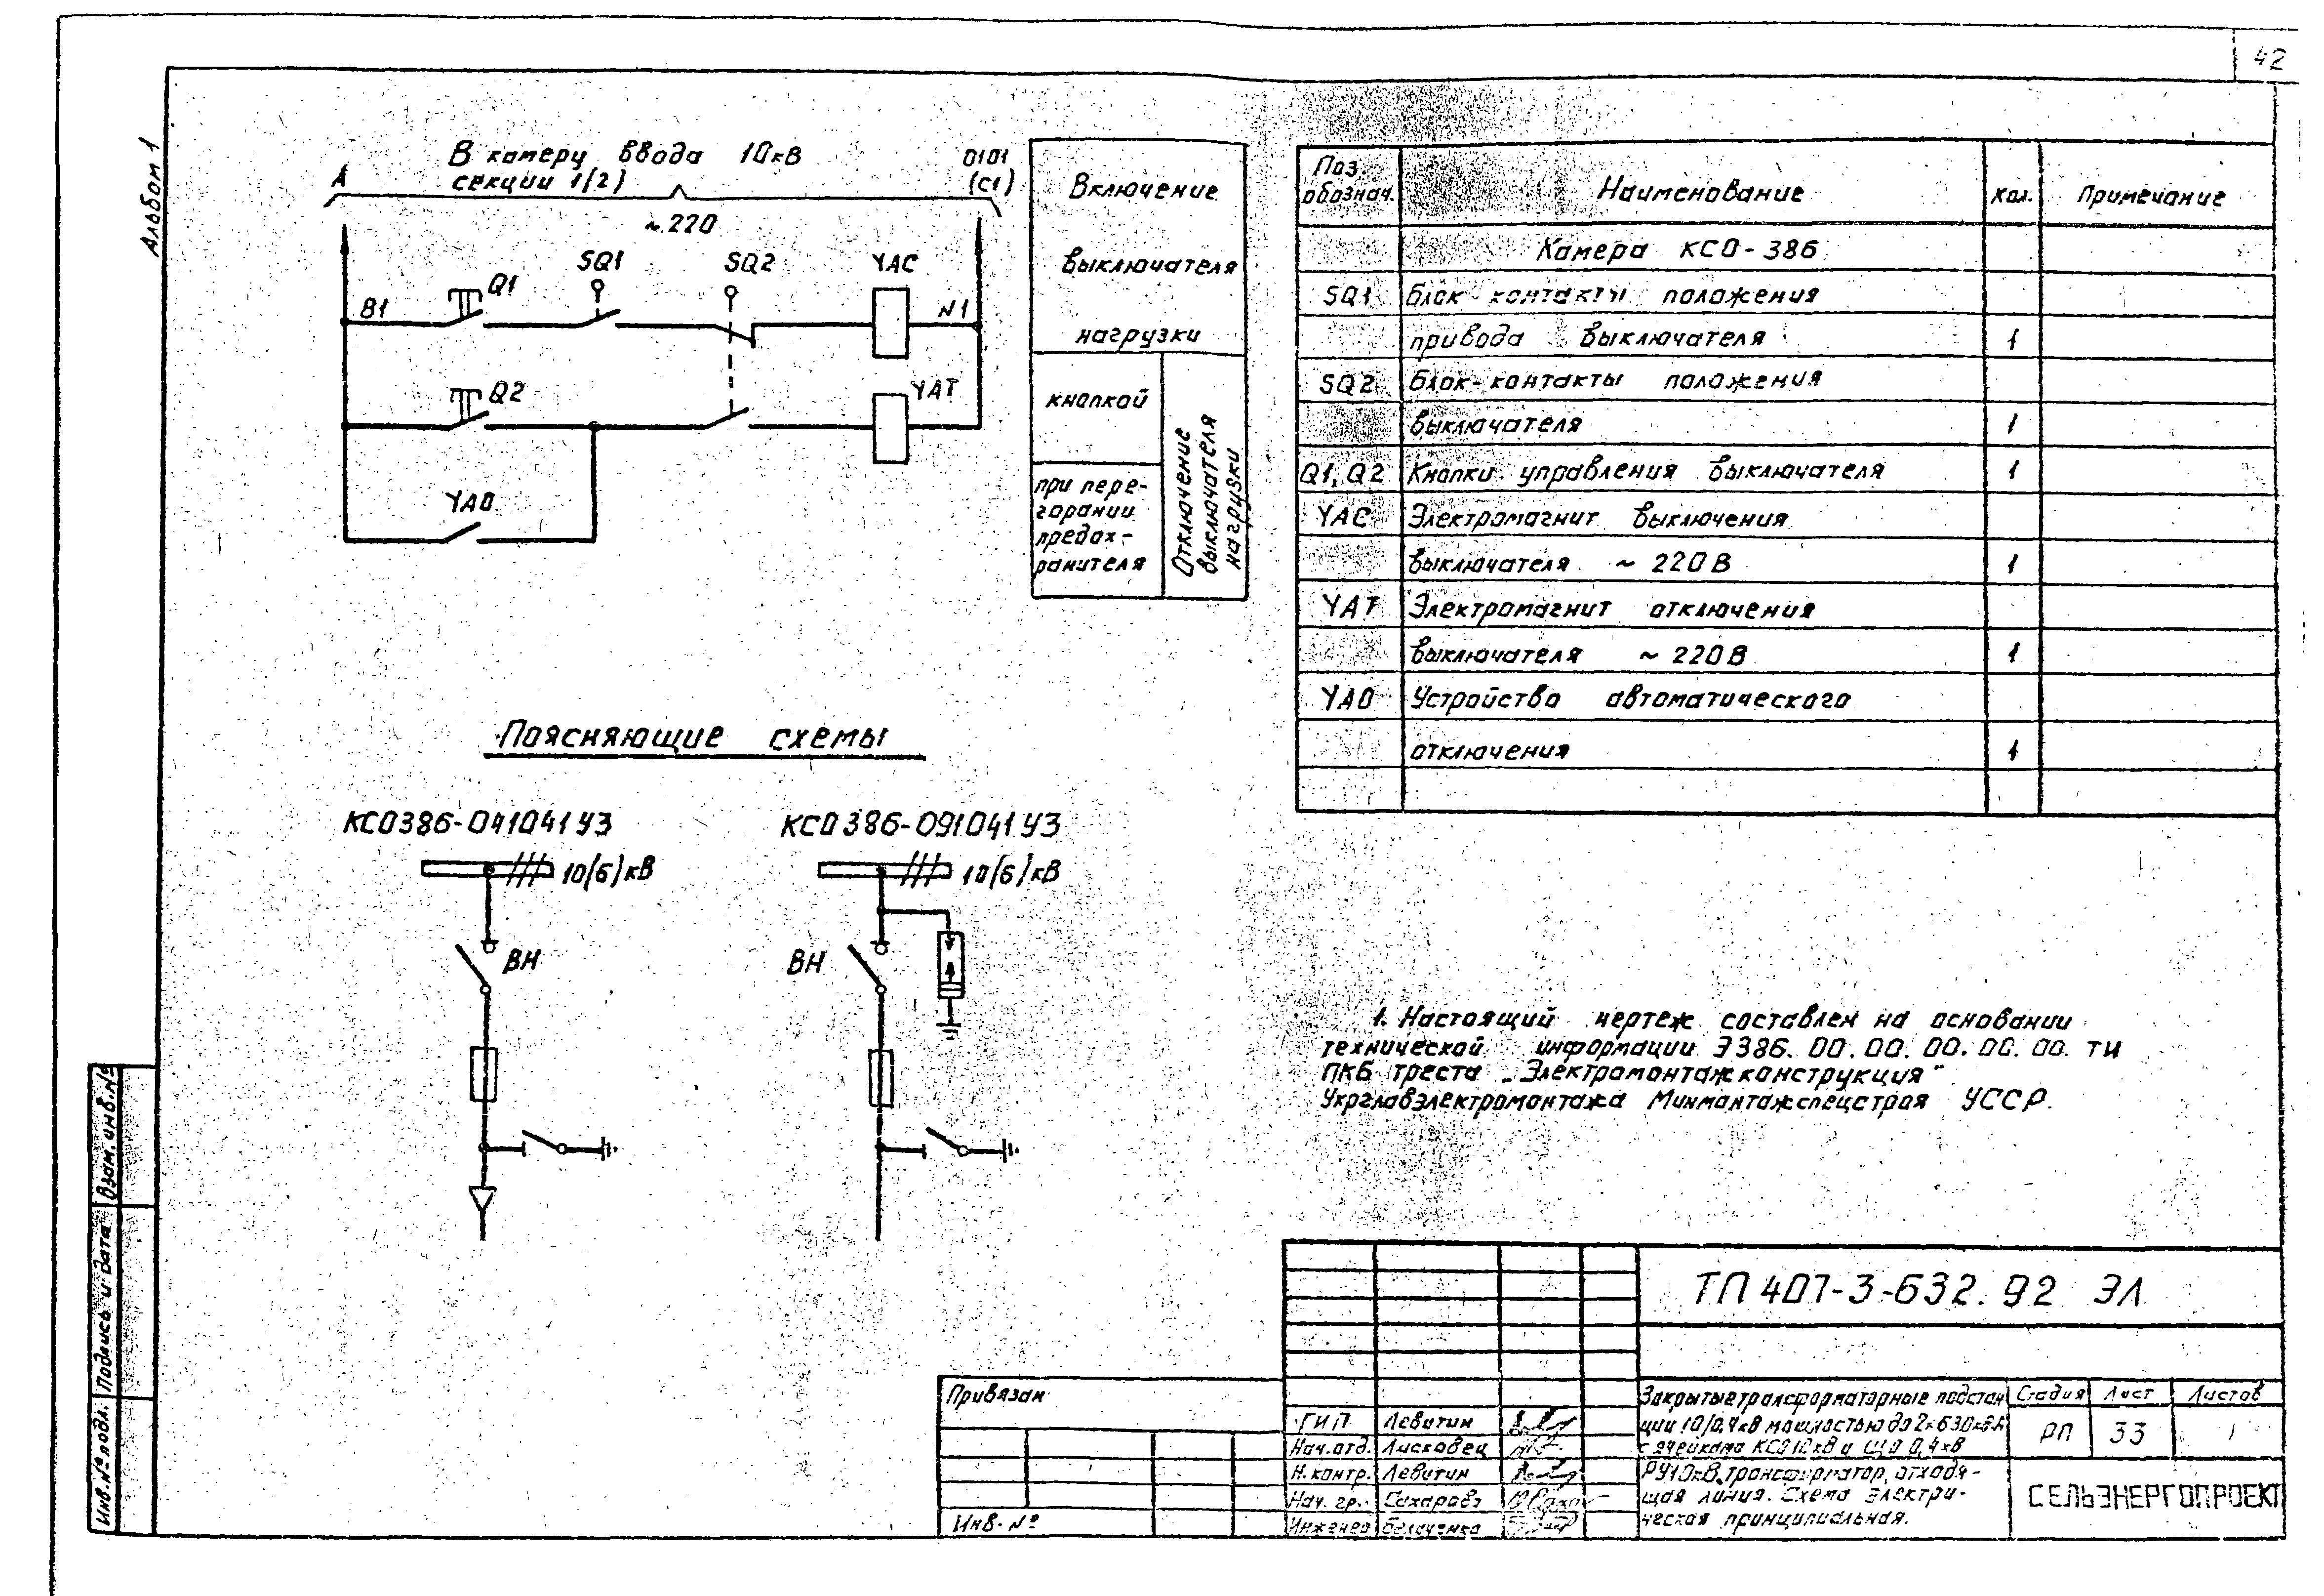 42
Альбом 1
В камеру ввода 10кВ
секции 1(2)
А
0101
(С1)
~220
В1
Q1
SQ1
SQ2
YAC
N1
Q2
YAT
YAO
Включение
выключателя
нагрузки
кнопкой
при пере-
горании
предох-
ранителя
Отключение
выключателя
нагрузки
Поз. обознач. Наименование Кол. Примечание
Камера КСО-386
SQ1 Блок-контакты положения
привода выключателя 1
SQ2 Блок-контакты положения
выключателя 1
Q1, Q2 Кнопки управления выключателя 1
YAC Электромагнит выключения
выключателя ~ 220В 1
YAT Электромагнит отключения
выключателя ~ 220В 1
YAO Устройство автоматического
отключения 1
Поясняющие схемы
КСО386-041041У3
10(6)кВ
ВН
КСО386-091041У3
10(6)кВ
ВН
1. Настоящий чертеж составлен на основании
технической информации Э386.00.00.00.00.00. ТИ
ПКБ треста „Электромонтажконструкция"
Укрглавэлектромонтажа Минмонтажспецстроя УССР.
Взам. инв.№
Подпись и дата
Инв.№ подл.
Привязан
Инв. №
ТП 407-3-632.92 ЭЛ
ГИП Левитин
Нач.отд. Лисковец
Н.контр. Левитин
Нач. гр. Сахарова
Инженер
Закрытые трансформаторные подстан
ции 10/0,4кВ мощностью до 2×630кВА
с ячейками КСО 10кВ и ЩО 0,4кВ
Стадия Лист Листов
РП 33 1
РУ10кВ, трансформатор, отходя-
щая линия. Схема электри-
ческая принципиальная.
СЕЛЬЭНЕРГОПРОЕКТ